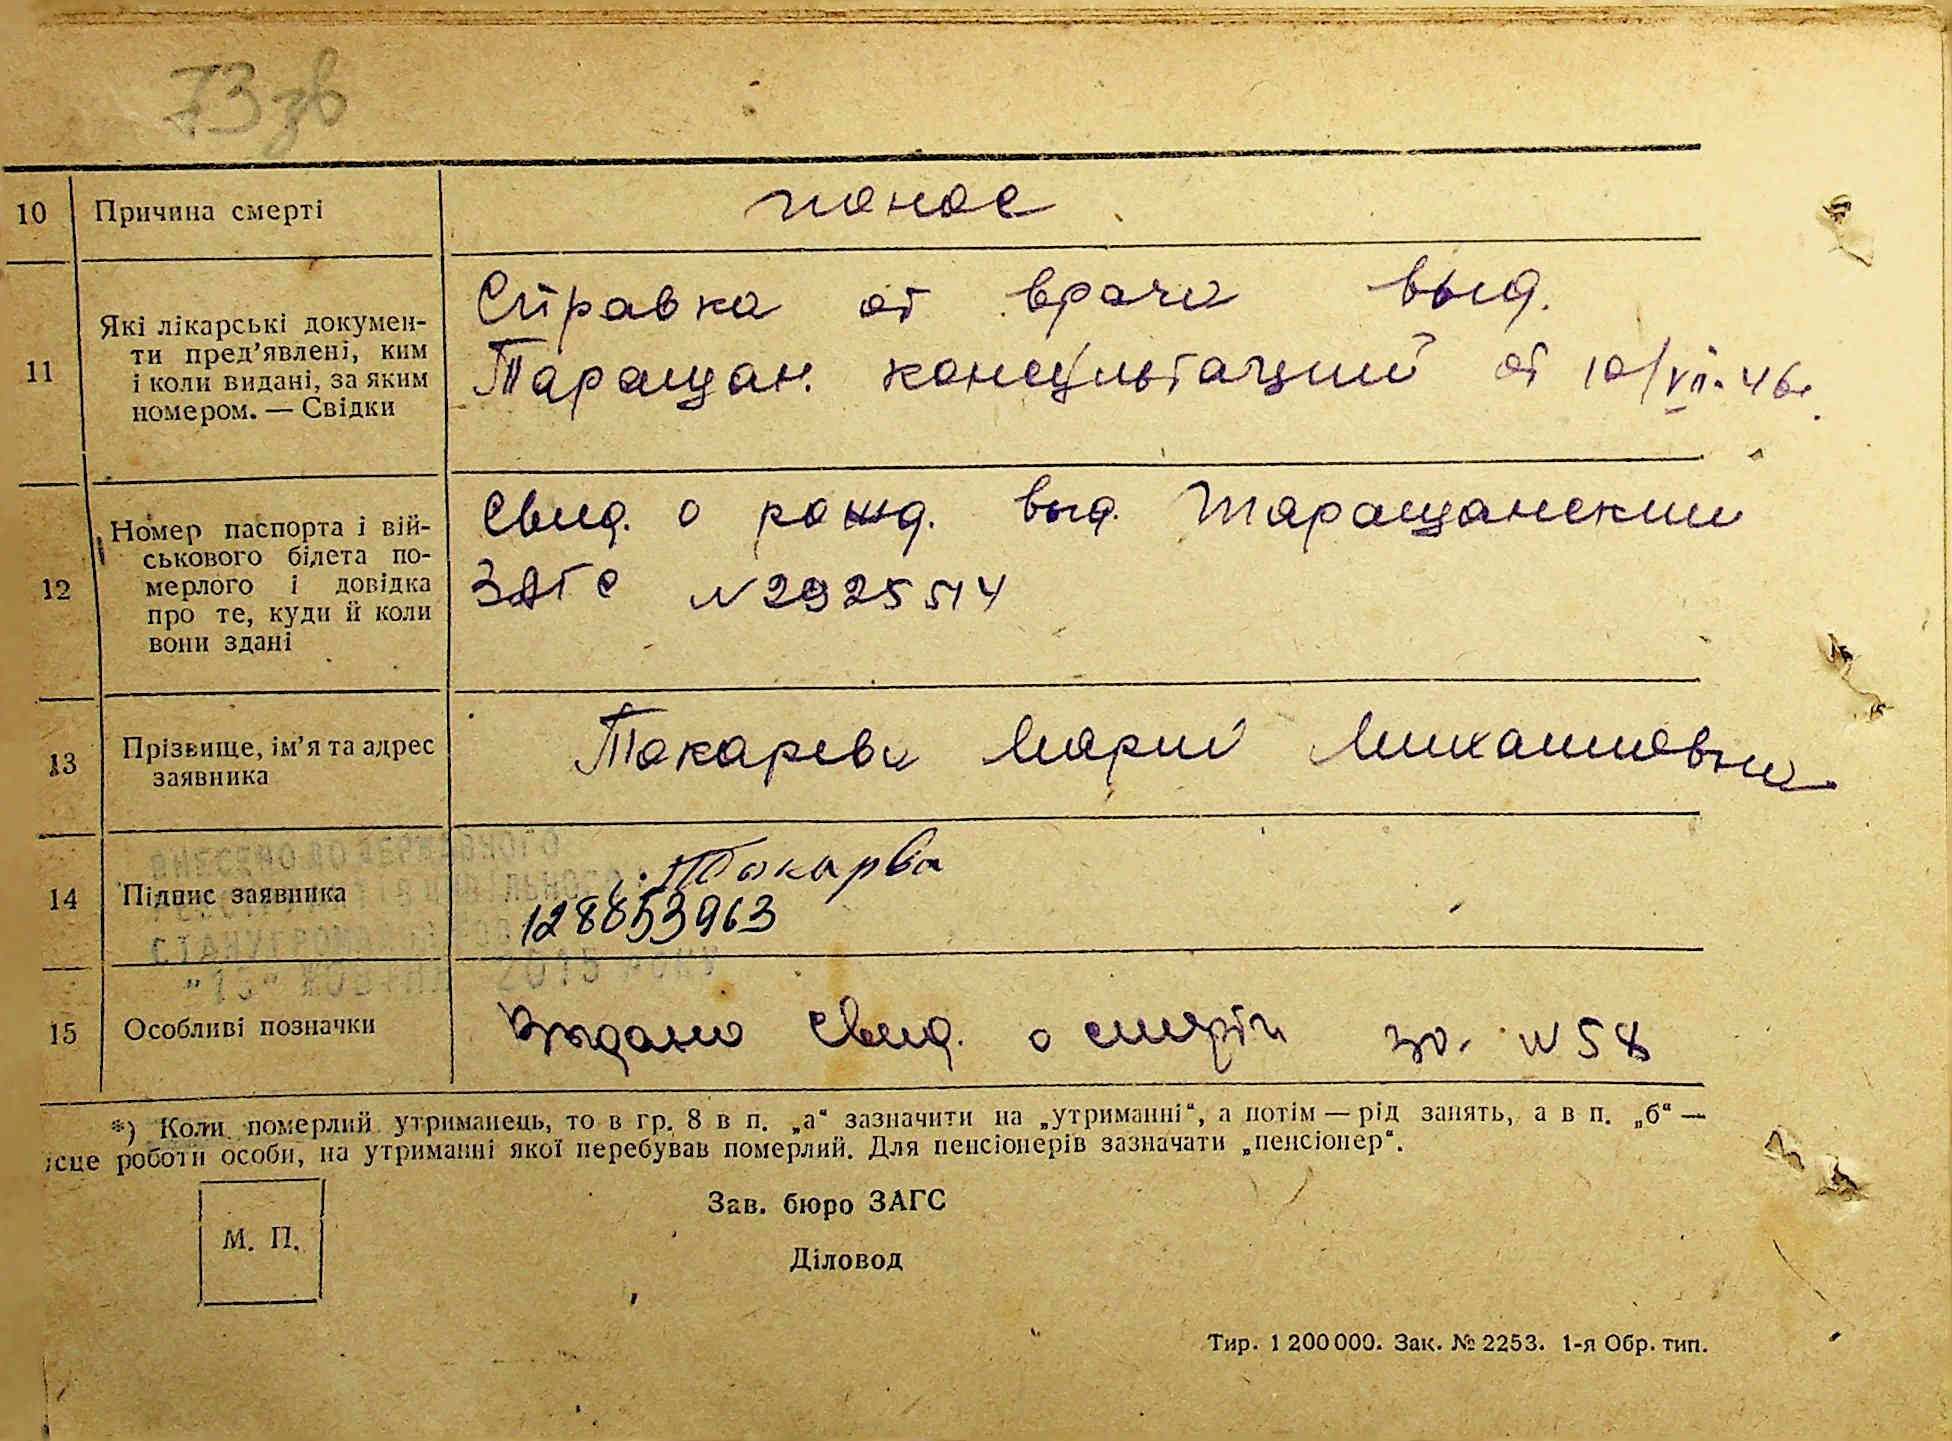 73 зв
10 Причина смерті понос
11 Які лікарські докумен-
ти пред’явлені, ким
і коли видані, за яким
номером. — Свідки
Справка от врача выд.
Таращан. консультацией от 10/VII-46г.
12 Номер паспорта і вій-
ськового білета по-
мерлого і довідка
про те, куди й коли
вони здані
Свид. о рожд. выд. Таращанским
ЗАГС №2925514
13 Прізвище, ім’я та адрес
заявника
Токарева Мария Михайловна
ВНЕСЕНО ДО ДЕРЖАВНОГО
14 Підпис заявника Токарва
128853963
"15" ЖОВТНЯ 2015 РОКУ
15 Особливі позначки Выдано свид. о смерти за № 58
*) Коли померлий утриманець, то в гр. 8 в п. „а“ зазначити на „утриманні“, а потім — рід занять, а в п. „б“ —
ісце роботи особи, на утриманні якої перебував померлий. Для пенсіонерів зазначати „пенсіонер“.
М. П.
Зав. бюро ЗАГС
Діловод
Тир. 1 200 000. Зак. № 2253. 1-я Обр. тип.